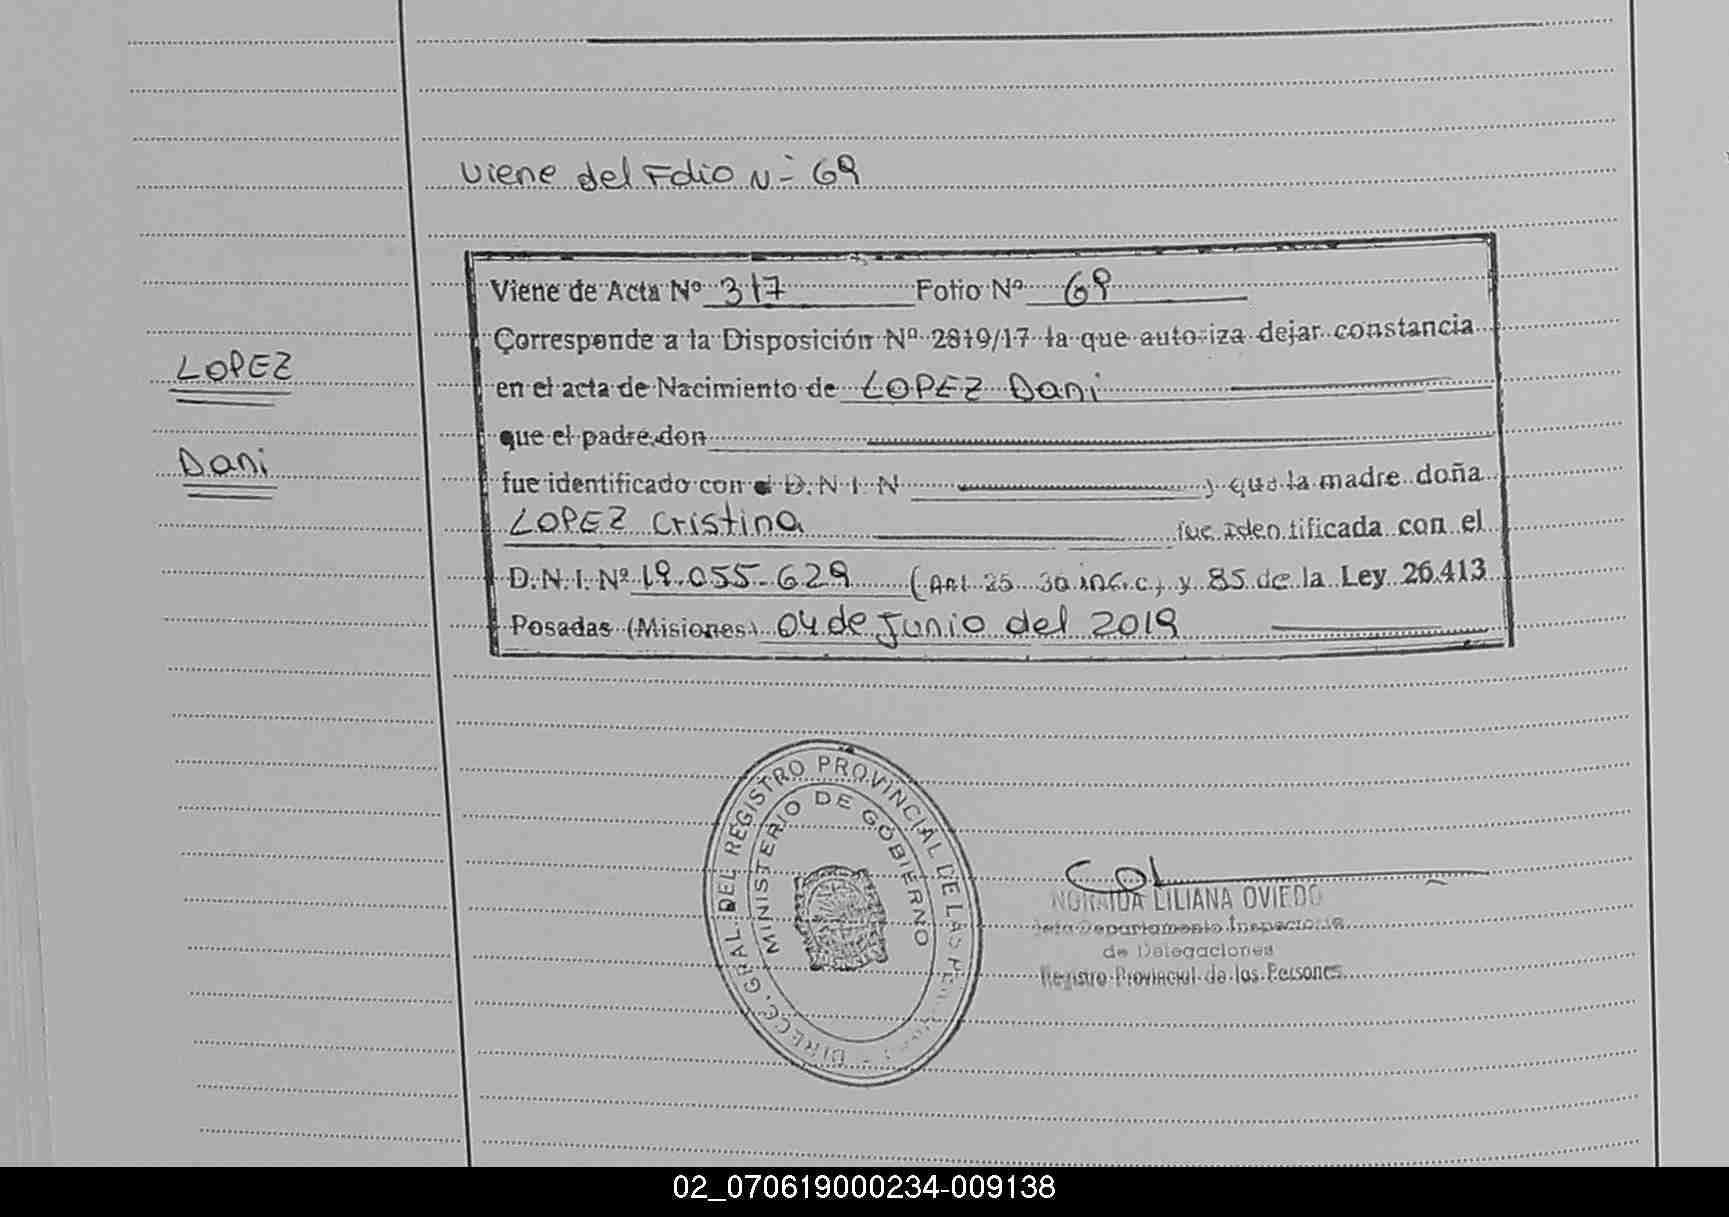 Viene del Folio Nº 69
Viene de Acta Nº 317 Folio Nº 69
Corresponde a la Disposición Nº 2819/17 la que autoriza dejar constancia
LOPEZ
en el acta de Nacimiento de LOPEZ Dani
que el padre don
Dani
fue identificado con el D.N.I. N y que la madre doña
LOPEZ Cristina fue identificada con el
D.N.I. Nº 19.055.629 (Art. 25 30 inc. c) y 85 de la Ley 26.413
Posadas (Misiones) 04 de Junio del 2019
DIRECC. GRAL. DEL REGISTRO PROVINCIAL DE LAS
MINISTERIO DE GOBIERNO
LILIANA OVIEDO
Jefa Departamento Inspecciones
de Delegaciones
Registro Provincial de las Personas
02_070619000234-009138